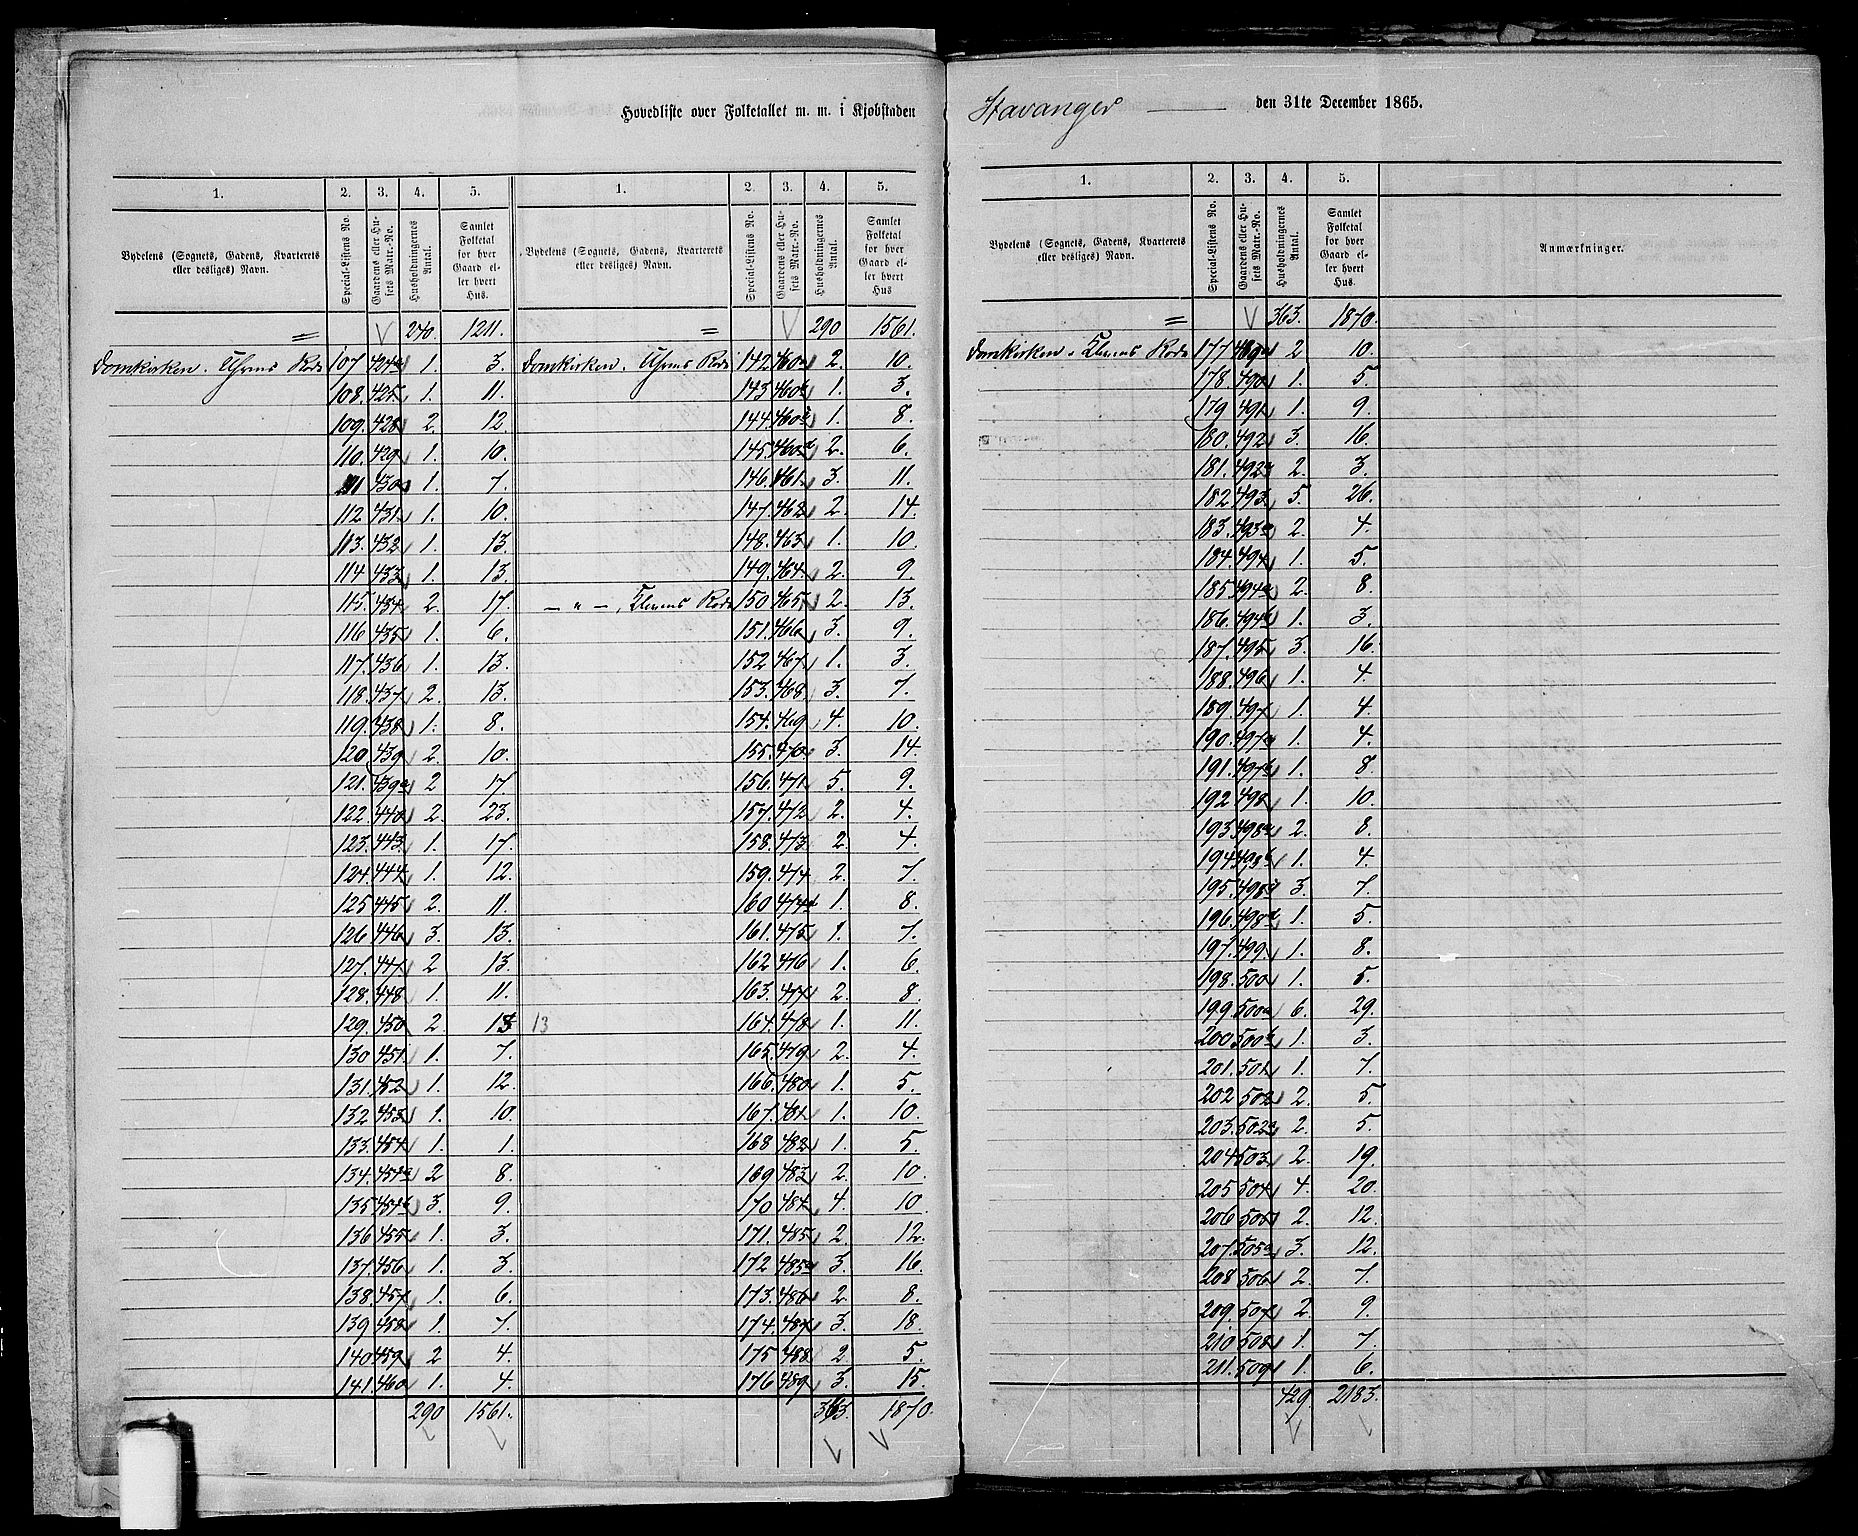 Hovedliste over Folketallet m. m. i Kjøbstaden Stavanger den 31te December 1865.
1. 2. 3. 4. 5.
Bydelens (Sognets, Gadens, Kvarterets eller desliges) Navn. Special-Listens No. Gaardens eller Husets Matr.-No. Husholdningernes Antal. Samlet Folketal for hver Gaard eller hvert Hus.
" 240. 1211.
Domkirken. Rode 107 424a 1. 3.
108. 425 1. 11.
109. 428 2. 12.
110. 429 1. 10.
111 430 1. 7.
112. 431 1. 10.
113. 432 1. 13.
114 433 1. 13.
115. 434 2. 17.
116 435 1. 6.
117. 436 1. 13.
118. 437 2. 13.
119. 438 1. 8.
120 439 2. 10.
121. 439a 2 17.
122 440 2. 23.
123. 443 1. 17.
124. 444 1. 12.
125 445 2. 11.
126 446 3. 13.
127. 447 2 13.
128. 448 1. 11.
129. 450 2 13 13
130 451 1. 7.
131. 452 1. 12.
132 453 1. 10.
133. 454 1. 1.
134. 454a 2 8.
135 454b 3. 9.
136 455 1. 3.
137. 456 1. 3.
138. 457 1. 6.
139 458 1. 7.
140 459 2 4.
141 460 1. 4.
290 1561.
1. 2. 3. 4. 5.
Bydelens (Sognets, Gadens, Kvarterets eller desliges) Navn. Special-Listens No. Gaardens eller Husets Matr.-No. Husholdningernes Antal. Samlet Folketal for hver Gaard eller hvert Hus
" 290 1561.
Domkirken. Rode 142 460a 2. 10.
143 460b 1. 3.
144. 460c 1. 8.
145. 460d 2. 6.
146. 461 3. 11.
147. 462 2. 14.
148. 463 1. 10.
149. 464 2. 9.
— " —, Clemens Rode 150 465 2. 13.
151. 466 3. 9.
152 467 1. 3.
153. 468 3. 7.
154. 469 4. 10.
155. 470 3. 14.
156. 471 5. 9.
157. 472 2. 4.
158. 473 2. 4.
159. 474 2. 7.
160 474a 1. 8.
161. 475 1. 7.
162 476 1. 6.
163. 477 2. 8.
164. 478 1. 11.
165. 479 2. 4.
166. 480 1. 5.
167. 481 1. 10.
168 482 1. 5.
169 483 2. 10.
170 484 4. 10.
171. 485 2 12.
172 485a 3. 16.
173. 486 2 8.
174. 487 3. 18.
175 488 2 5.
176 489 3. 15.
363. 1870.
1. 2. 3. 4. 5.
Bydelens (Sognets, Gadens, Kvarterets eller desliges) Navn. Special-Listens No. Gaardens eller Husets Matr.-No. Husholdningernes Antal. Samlet Folketal for hver Gaard eller hvert Hus. Anmærkninger.
" 363. 1870.
Domkirken. Clemens Rode 177 489a 2 10.
178. 490 1. 5.
179 491 1. 9.
180. 492 3. 16.
181. 492a 2. 3.
182 493 5. 26.
183. 493a 2. 4.
184. 494 1. 5.
185 494a 2. 8.
186. 494b 1. 3.
187. 495 3. 16.
188. 496 1. 4.
189. 497 1. 4.
190. 497a 1. 4.
191. 497b 1. 8.
192 498 1. 10.
193 498a 2. 8.
194 498b 1. 4.
195. 498c 3. 7.
196. 498d 1. 5.
197. 499 1. 8.
198. 500 1. 5.
199 500a 6. 29.
200 500b 1. 3.
201. 501 1. 7.
202 502 2. 5.
203. 502a 2. 5.
204 503 2. 19.
205 504 4. 20.
206 505 2. 12.
207. 505a 3. 12.
208 506 2. 7.
209. 507 2. 9.
210 508 1. 7.
211. 509 1. 6.
429. 2183.